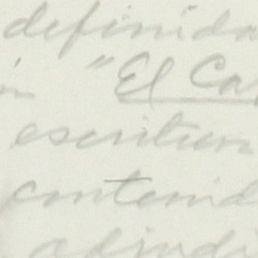 definida
" El Ca
escritura
contenid
adjudi